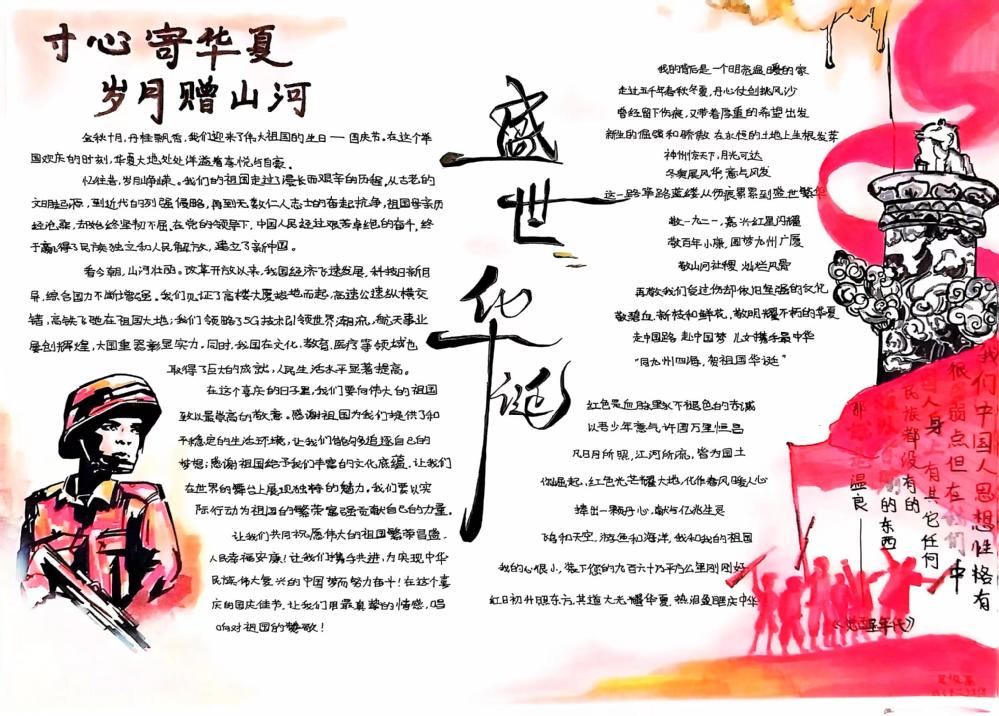 寸心寄华夏
岁月赠山河
金秋十月,丹桂飘香,我们迎来了伟大祖国的生日——国庆节。在这个举
国欢庆的时刻,华夏大地处处洋溢着喜悦与自豪。
忆往昔,岁月峥嵘。我们的祖国走过了漫长而艰辛的历程,从古老的
文明起源,到近代的列强侵略,再到无数仁人志士的奋起抗争,祖国母亲历
经沧桑,却始终坚韧不屈,在党的领导下,中国人民经过艰苦卓绝的奋斗,终
于赢得了民族独立和人民解放,建立了新中国。
看今朝,山河壮丽。改革开放以来,我国经济飞速发展,科技日新月
异,综合国力不断增强。我们见证了高楼大厦拔地而起,高速公速纵横交
错,高铁飞驰在祖国大地;我们领略了5G技术引领世界潮流,航天事业
屡创辉煌,大国重器彰显实力。同时,我国在文化、教育、医疗等领域也
取得了巨大的成就,人民生活水平显著提高。
在这个喜庆的日子里,我们要向伟大的祖国
致以最崇高的敬意。感谢祖国为我们提供了和
平稳定的生活环境,让我们能够追逐自己的
梦想;感谢祖国给予我们丰富的文化底蕴,让我们
在世界的舞台上展现独特的魅力。我们要以实
际行动为祖国的繁荣富强贡献自己的力量。
让我们共同祝愿伟大的祖国繁荣昌盛,
人民幸福安康!让我们携手共进,为实现中华
民族伟大复兴的中国梦而努力奋斗!在这个喜
庆的国庆佳节,让我们用最真挚的情感,唱
响对祖国的赞歌!
盛世华诞
我的背后是一个明亮温暖的家
走过五千年春秋冬夏,丹心仗剑挑风沙
曾经留下伤痕,又带着厚重的希望出发
新生的倔强和骄傲 在永恒的土地上生根发芽
神州惊天下,月光可达
冬奥展风华 意与风发
这一路筚路蓝缕从伤痕累累到盛世繁华
敬一九二一,嘉兴红星闪耀
敬百年小康,圆梦九州广厦
敬山河社稷 灿烂风骨
再敬我们受过伤却依旧坚强的文化
敬碧血,新枝和鲜花,敬明耀不朽的华夏
走中国路 赴中国梦 儿女携手最中华
“同九州四海,贺祖国华诞”
红色是血脉里永不褪色的赤诚
以吾少年意与许国万里恒昌
凡日月所照,江河所流,皆为国土
你崛起,红色光芒耀大地,化作春风暖人心
捧出一颗丹心,献与亿兆生灵
飞鸟和天空,游鱼和海洋,我和我的祖国
我的心很小,装下您的九百六十万平方公里刚刚好
红日初升照东方,其道大光耀华夏,热泪盈眶庆中华
我们中国人思想性格有
很多弱点但在他们中
国人身上有其它任何
民族都没有的
的东西
那就是温良——
《觉醒年代》